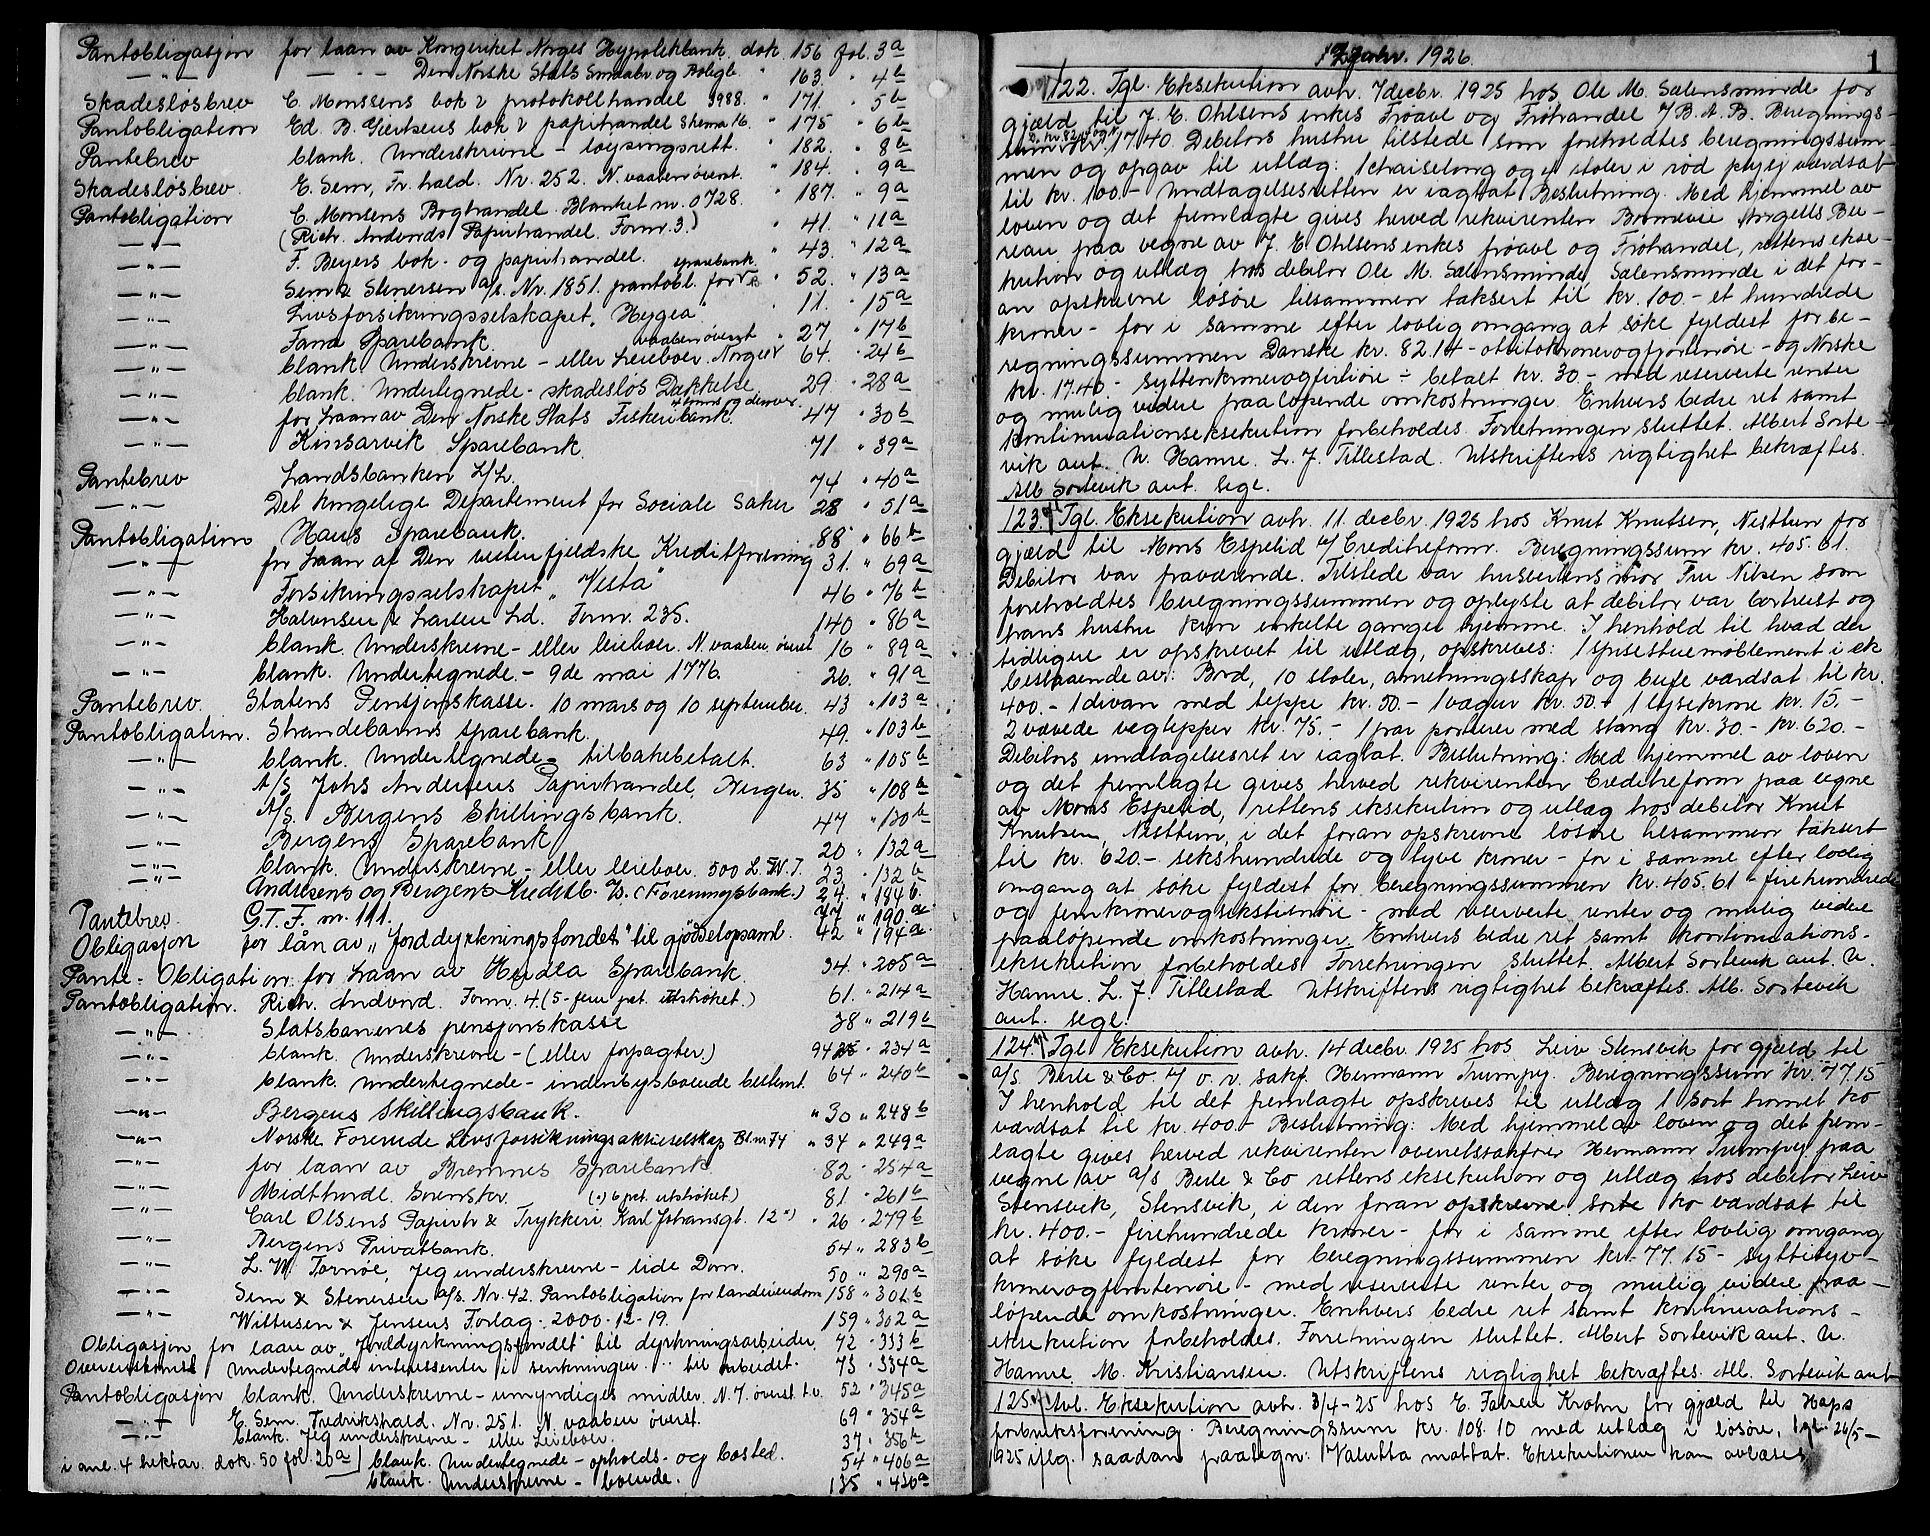 Pantobligasjon for laan av Kongeriket Norges Hypotekbank. dok 156 fol. 3a
— " — — " — Den Norske Stats Smaabr og Boligb. " 163. " 4b
Skadesløsbrev C. Monssens bok & protokollhandel 3988. " 171. " 5b
Pantobligation Ed. B. Giertsens bok & papirhandel Skema 16. " 175 " 6b
Pantebrev blank. Underskrevne - løysingsrett. " 182. " 8b
Skadesløsbrev. E. Sem, Fr.hald. Nr. 252. N. vaaben øverst. " 184. " 9a
Pantobligation C. Monsens Boghandel. Blanket nr. 0728. " 187. " 9a
— " — (Rich. Andvords Papirhandel. Form. 3.) " 41. " 11a
— " — F. Beyers bok- og papirhandel. " 43. " 12a
— " — Sem & Stenersen a/s. Nr. 1851. pantobl. for sparebank. " 52. " 13a
— " — Livsforsikringsselskapet "Hygea". " 11. " 15a
— " — Fana Sparebank. " 27 " 17b
— " — blank. Underskrevne - eller Leieboer. Norges vaaben øverst 64. " 24b
— " — blank. Undertegnede - skadesløs Dækkelse 29. " 28a
— " — for Laan av Den Norske Stats Fiskeribank. 47 " 30b
— " — Kinsarvik Sparebank. 71 " 39a
Pantebrev Landsbanken L/L. 74 " 40a
— " — Det kongelige Departement for Sociale Saker 28 " 51a
Pantobligation Haus Sparebank. 88 " 66b
— " — for Laan af Den vestenfjeldske Kreditforening 31. " 69a
— " — Forsikringsselskapet "Vesta" 46 " 76b
— " — Halvorsen & Larsen Ld. Form. 235. 140 " 86a
— " — blank. Underskrevne - eller leieboer. N. vaaben øverst 16 " 89a
— " — blank. Undertegnede. - 9de mai 1776. 26. " 91a
Pantebrev. Statens Pensjonskasse. 10 mars og 10 september. 43 " 103a
Pantobligation. Strandebarms sparebank. 49. " 103b
— " — blank. Undertegnede - tilbakebetalt. 63 " 105b
— " — A/S Johs Andersens Papirhandel, Bergen. 35 " 108a
— " — A/S. Bergens Skillingsbank. 47 " 130b
— " — Bergens Sparebank 20 " 132a
— " — blank. Underskrevne - eller leieboer. 500 L. W. T. 23 " 132b
— " — Andresens og Bergens Kreditb. A/S. (Foreningsbank.) 24. " 184b.
Pantebrev. G.T.F. nr. 111. 77 " 190a
Obligasjon for lån av "Jorddyrkningsfondet" til gjødselopsaml. 42 " 194a
Pante-Obligation for Laan av Herdla Sparebank. 34. " 205a
Pantobligation. Rich. Andvord. Form. 4. (5-fem pct. utstrøket.) 61. " 214a
— " — Statsbanenes pensjonskasse 38 " 219b
— " — blank. Underskrevne - (eller forpagter.) 94 " 234a
— " — blank. Undertegnede - indenbysboende bestemt. 64 " 240b
— " — Bergens Skillingsbank. " 30 " 248b
— " — Norske Forenede Livsforsikringsaktieselskap Bl. nr 74 " 34 " 249a
— " — for laan av Bremnes Sparebank. 82 " 254a
— " — Midthordl. Sorenskr. (") 6 pct. utstrøket) 81 " 261b
— " — Carl Olsens Papirh & Trykkeri, Karl Johansgt. 12") " 26 " 279b
— " — Bergens Privatbank. 54 " 283b
— " — L. W. Tornøe, Jeg underskrevne - lide Dom. 50 " 290a
— " — Sem & Stenersen a/s. Nr. 42. Pantobligation for landeiendom 158 " 301b
— " — Wittusen & Jensens Forlag. 2000-12-19. 159 " 302a
Obligasjon for laan av "Jorddyrkningsfondet" til dyrkningsarbeider 42 " 333b
Overenskomst Undertegnede interessenter i senkninger .. til arbeidet. 73 " 334a
Pantobligasjon blank. Underskrevne - umyndiges midler. N. 7. øverst t.v. 52 " 345a
— " — E. Sem. Fredrikshald. Nr. 251. N. vaaben øverst. 69 " 354a
— " — blank. Jeg underskrevne - eller Leieboer. 37 " 356b
i anl. 4 hektar. dok. 50 fol. 20a blank. Undertegnede - opholds- og bosted. 54 " 406a
blank. Underskrevne - boende. 135 " 420a
januar. 1926. 1
122. Tgl. Eksekution avh. 7 decbr. 1925 hos Ole M. Sælensminde for
gjæld til J. E. Ohlsens enkes Frøavl og Frøhandel v/ B. A. B. Beregnings-
sum D. kr. 82.14 og N. kr. 17.40. Debitors hustru tilstede som foreholdtes beregningssum-
men og opgav til utlæg: 1 chaiselong og 4 stoler i rød plysj værdsat
til kr. 100.- Undtagelsesretten er iagtat. Beslutning. Med hjemmel av
loven og det fremlagte gives herved rekvirenten Bonnevie Angells Bu-
reau paa vegne av J. E. Ohlsens enkes frøavl og Frøhandel, rettens ekse-
kution og utlæg hos debitor Ole M. Sælensminde, Sælensminde i det for-
an opskrevne løsøre tilsammen taksert til kr. 100.- et hundrede
kroner - for i samme efter lovlig omgang at søke fyldest for be-
regningssummen Danske kr. 82.14 - ottitokronerogfjortenøre - og Norske
kr. 17.40 - syttenkronerogførtiøre ÷ betalt kr. 30.- med reserverte renter
og mulig videre paaløpende omkostninger. Enhvers bedre ret samt
kontinuationseksekution forbeholdes. Forretningen sluttet. Albert Sorte-
vik aut. N. Hamre. L. J. Tillestad. Utskriftens rigtighet bekræftes.
Alb Sortevik aut. segl.
123. Tgl. Eksekution avh. 11. decbr. 1925 hos Knut Knutsen, Nesttun for
gjæld til Mons Espelid v/ Creditreform. Beregningssum kr. 405.61.
Debitor var fraværende. Tilstede var husvertens mor Fru Nilsen som
foreholdtes beregningssummen og oplyste at debitor var bortreist og
hans hustru kun enkelte ganger hjemme. I henhold til hvad der
tidligere er opskrevet til utlæg, opskreves: 1 spisestuemøblement i ek
bestaaende av: Bord, 10 stoler, anretningsskap og bufe værdsat til kr.
400.- 1 divan med teppe kr. 50.- 1 vægur kr. 50.- 1 lysekrone kr. 15.-
2 vævede vegtepper kr. 75.- 1 par portierer med stang kr. 30.- kr. 620.-
Debitors undtagelsesret er iagtat. Beslutning: Med hjemmel av loven
og det fremlagte gives herved rekvirenten Creditreform paa vegne
av Mons Espelid, rettens eksekution og utlæg hos debitor Knut
Knutsen, Nesttun, i det foran opskrevne løsøre tilsammen taksert
til kr. 620.- sekshundrede og tyve kroner - for i samme efter lovlig
omgang at søke fyldest for beregningssummen kr. 405.61 - firehundrede
og femkronerogsekstienøre - med reserverte renter og mulig videre
paaløpende omkostninger. Enhvers bedre ret samt kontinuations-
eksekution forbeholdes. Forretningen sluttet. Albert Sortevik aut. N.
Hamre. L. J. Tillestad. Utskriftens rigtighet bekræftes. Alb. Sortevik
aut. segl.
124. Tgl. Eksekution avh. 14 decbr. 1925 hos Leiv Stensvik for gjæld til
a/s. Berle & Co. v/ o. r. sakf. Hermann Trumpy. Beregningssum kr. 77.15
I henhold til det fremlagte opskreves til utlæg 1 sort hornet ko
værdsat til kr. 400.- Beslutning: Med hjemmel av loven og det frem-
lagte gives herved rekvirenten overretssakfører Hermann Trumpy paa
vegne av a/s Berle & Co rettens eksekution og utlæg hos debitor Leiv
Stensvik, Stensvik, i den foran opskrevne sorte ko værdsat til
kr. 400.- firehundrede kroner - for i samme efter lovlig omgang
at søke fyldest for beregningssummen kr. 77.15 - syttisyv-
kronerogfemtenøre - med reserverte renter og mulig videre paa-
løpende omkostninger. Enhvers bedre ret samt kontinuations-
eksekution forbeholdes. Forretningen sluttet. Albert Sortevik aut. N.
Hamre. M. Kristiansen. Utskriftens rigtighet bekræftes. Alb. Sortevik aut
125. Avl. Eksekution avh. 3/4-25 hos E. Falsen Krohn for gjæld til Haps
forbruksforening. Beregningssum kr. 108.10 med utlæg i løsøre, tgl. 26/5-
1925 iflg. saadan paategn: Valutta mottat. Eksekutionen kan avlæses